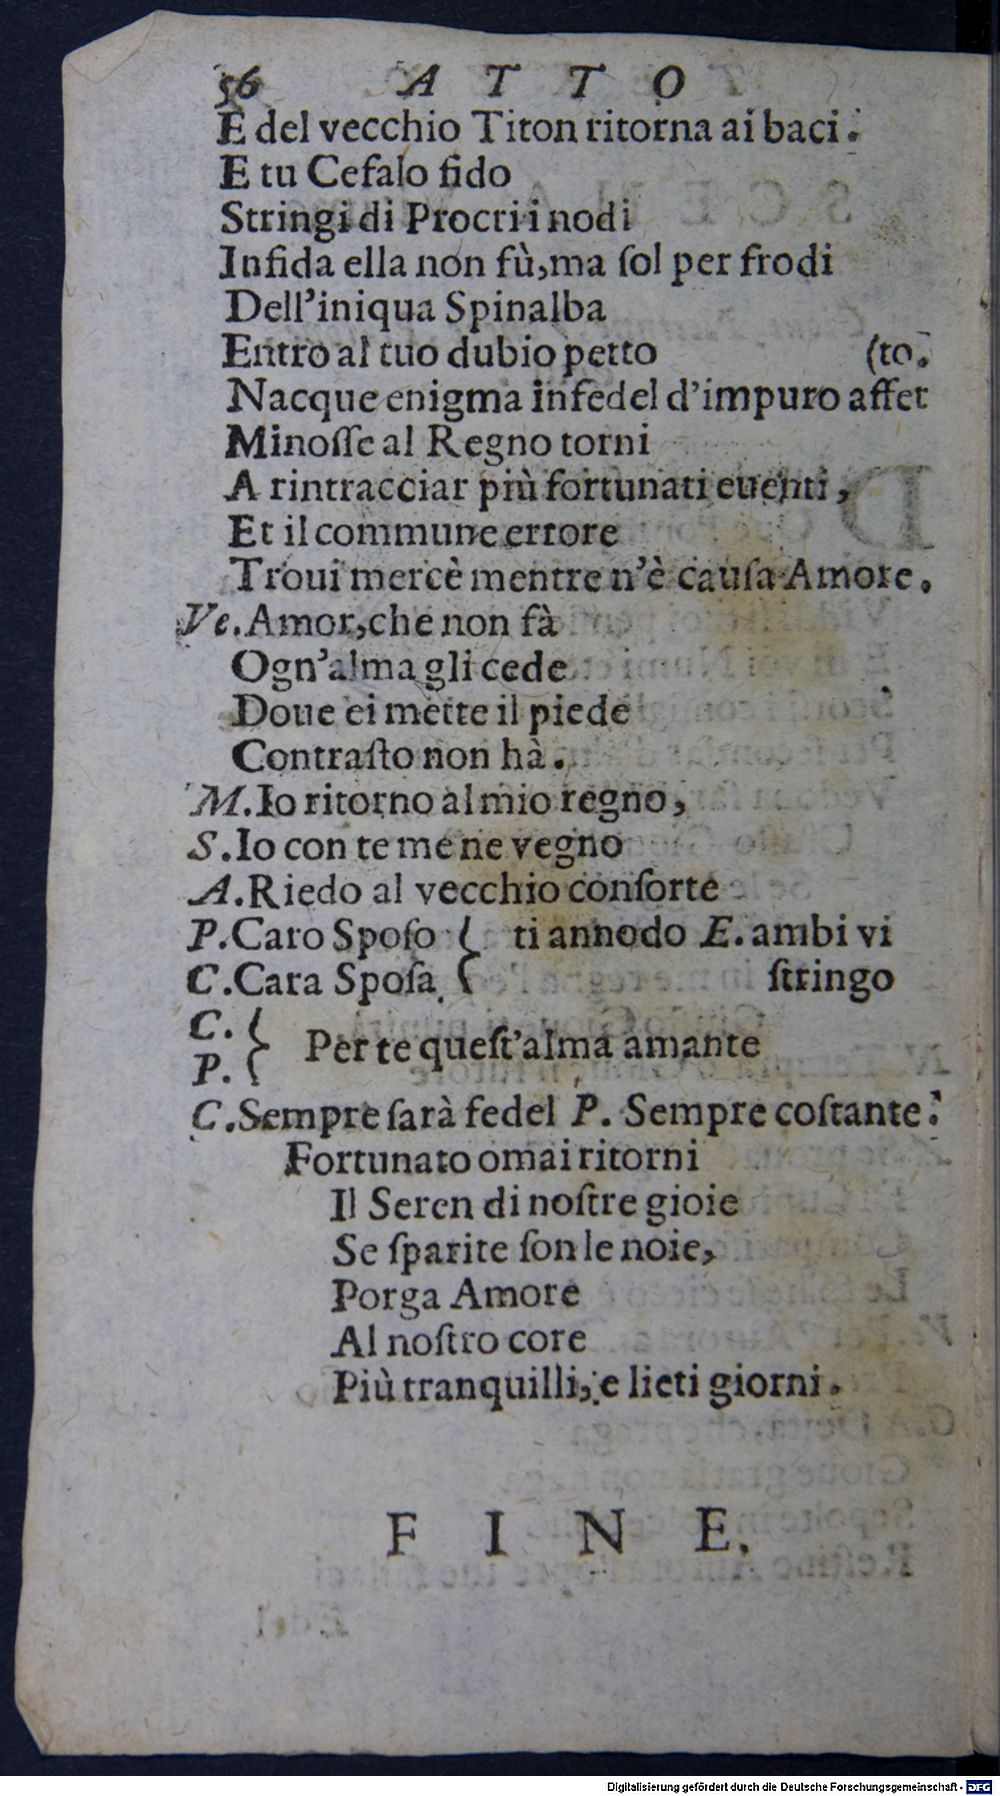 56 A T T O
E del vecchio Titon ritorna ai baci.
E tu Cefalo fido
Stringi di Procri i nodi
Infida ella non fù, ma ſol per frodi
Dell'iniqua Spinalba
Entro al tuo dubio petto (to.
Nacque enigma infedel d'impuro affet
Minoſſe al Regno torni
A rintracciar più fortunati euenti,
Et il commune errore
Troui mercè mentre n'è cauſa Amore.
Ve. Amor, che non fà
Ogn'alma gli cede
Doue ei mette il piede
Contraſto non hà.
M. Io ritorno al mio regno,
S. Io con te me ne vegno
A. Riedo al vecchio conſorte
P. Caro Spoſo { ti annodo E. ambi vi
C. Cara Spoſa { ſtringo
C. {
P. { Per te queſt'alma amante
C. Sempre ſarà fedel P. Sempre coſtante.
Fortunato omai ritorni
Il Seren di noſtre gioie
Se ſparite ſon le noie,
Porga Amore
Al noſtro core
Più tranquilli, e lieti giorni.
F I N E.
Digitalisierung gefördert durch die Deutsche Forschungsgemeinschaft - DFG